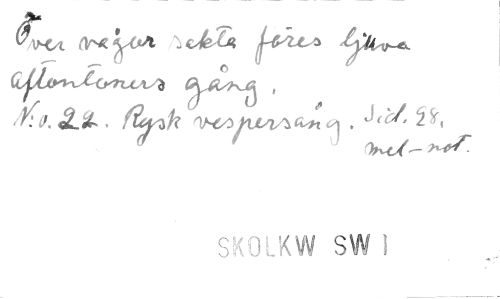 Över vågor sakta föres ljuva
aftontoners gång.
N:o. 22. Rysk vespersång. Sid. 28.
mel-not.
SKOLKW SW 1